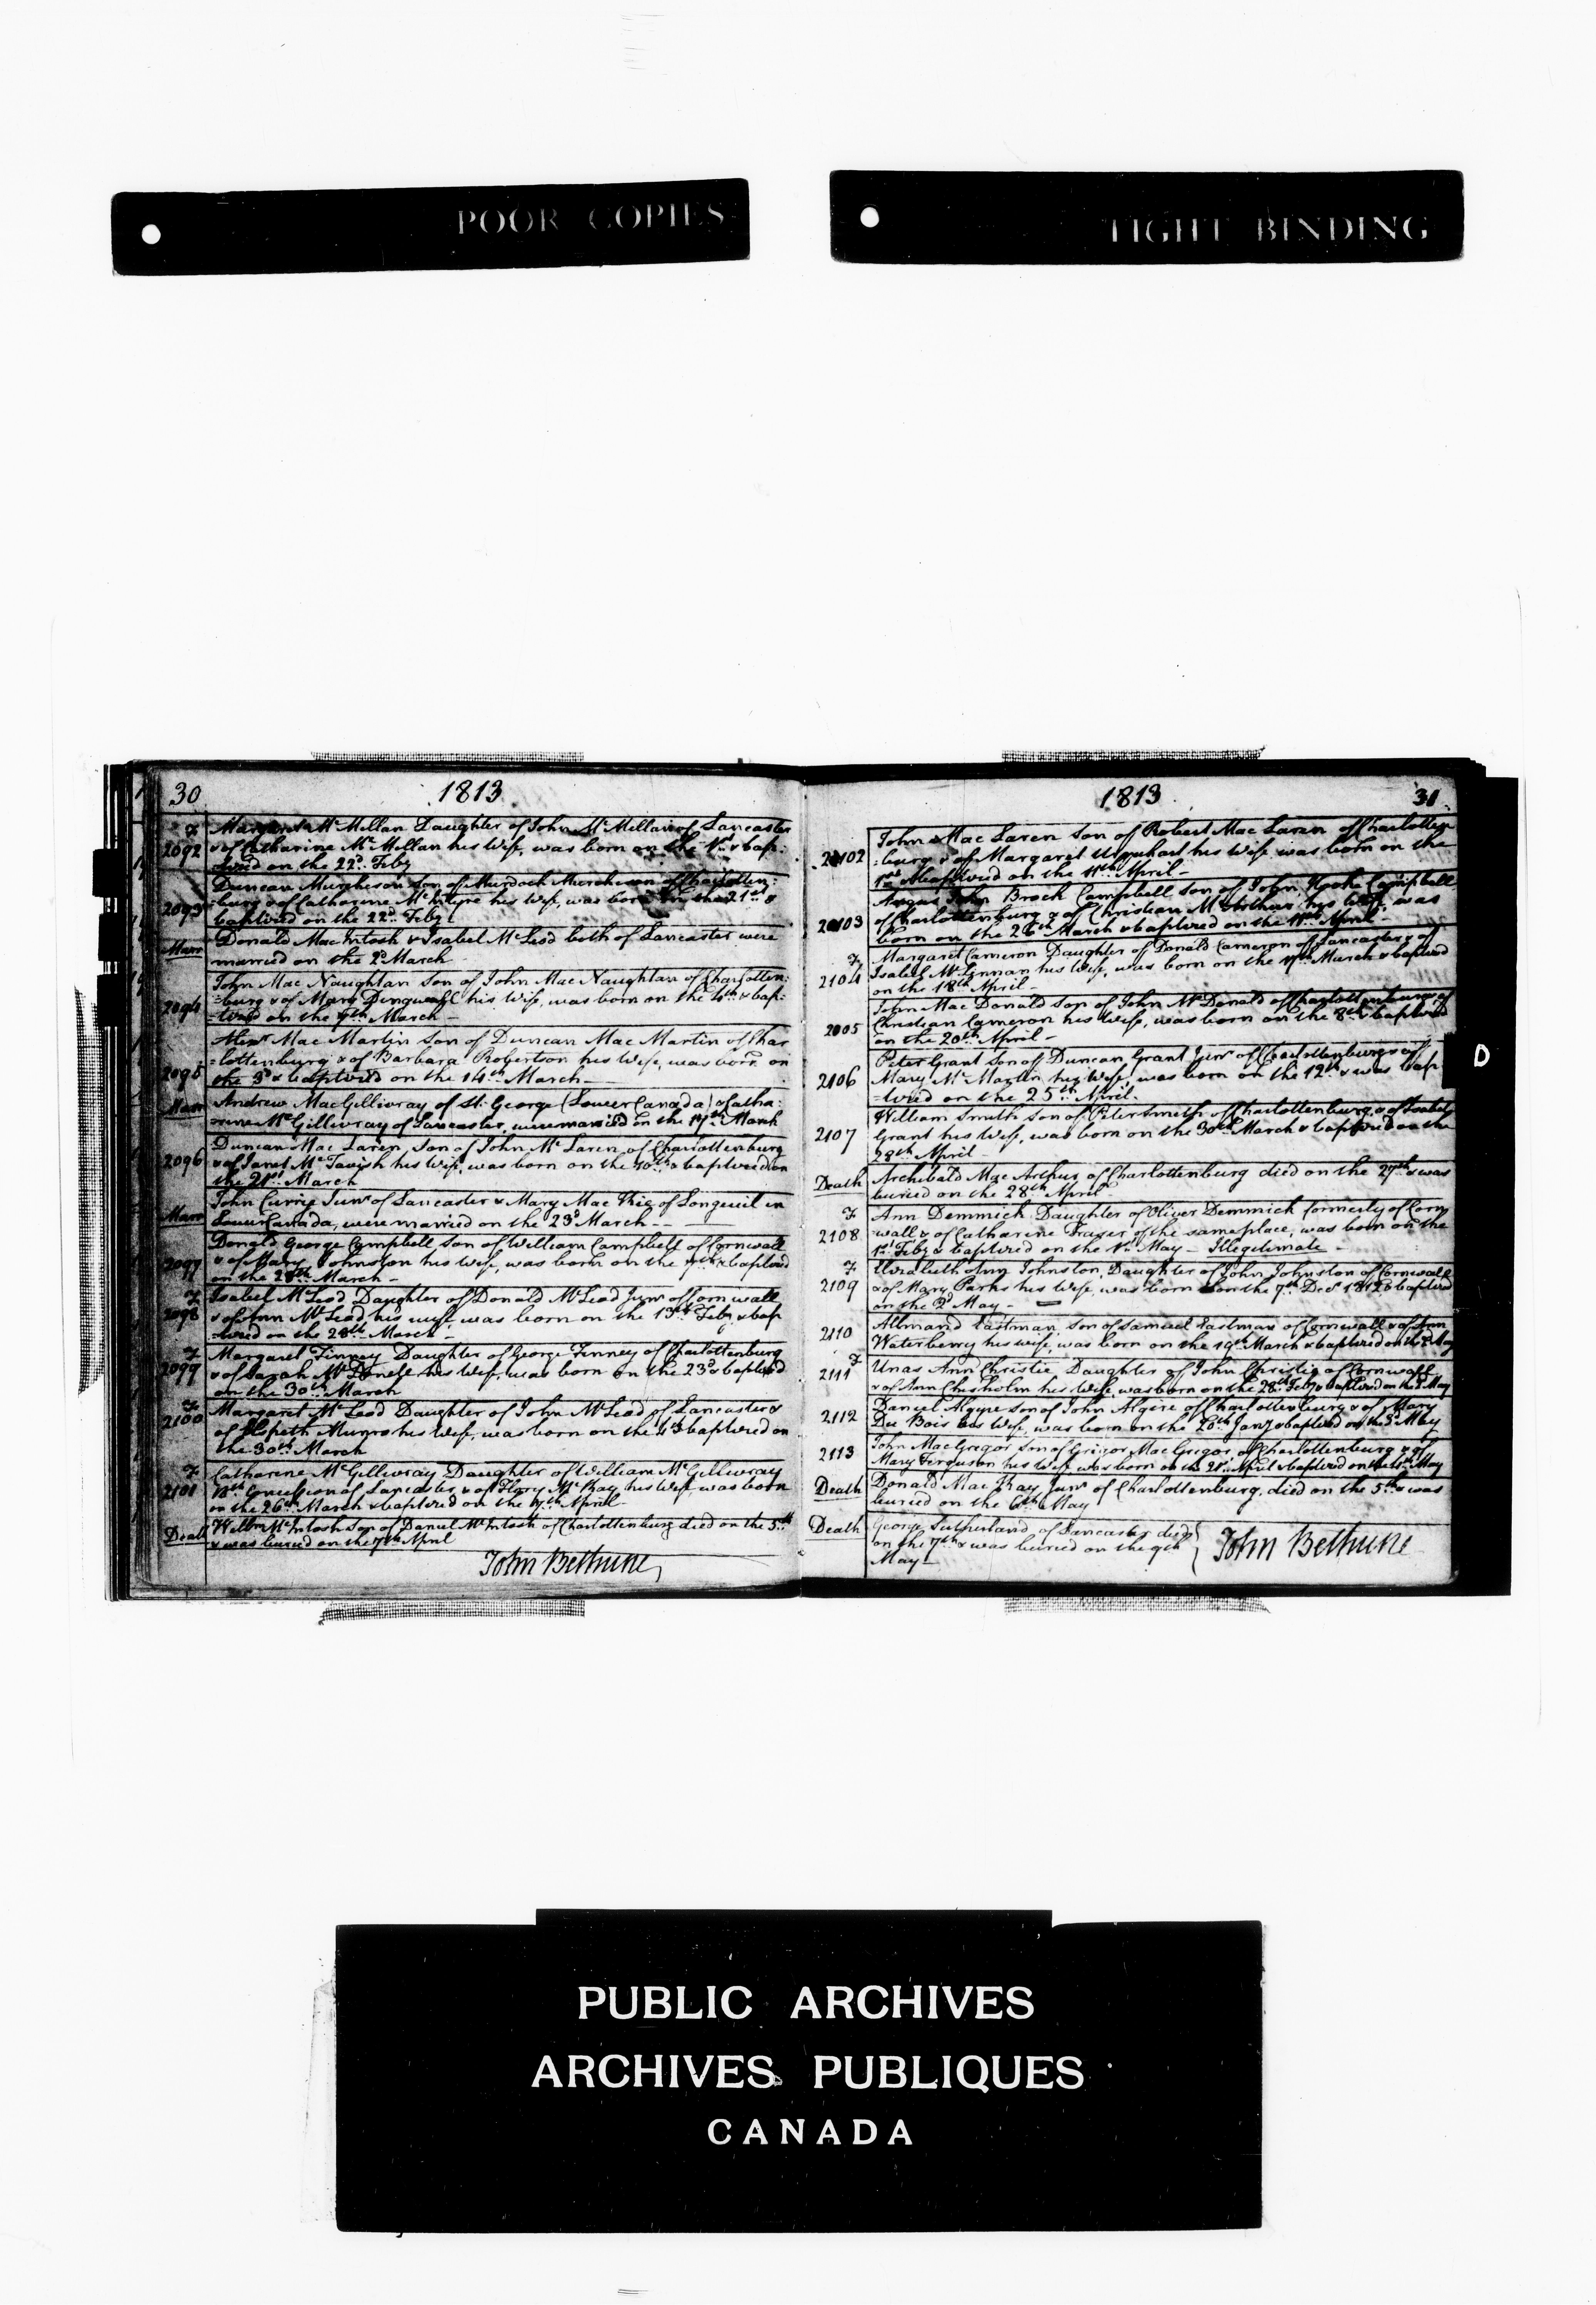 POOR COPIES
TIGHT BINDING
30 1813
7 Margaret McMillan Daughter of John McMillan of Lancaster
2092 & of Catharine McMillan his Wife, was born on the 1st & bap:
=tized on the 22d Feby
Duncan Murcheson Son of Murdoch Murcheson of Charlotten:
2093 =burg & of Catharine McIntyre his Wife, was born on the 21st &
baptized on the 22d Feby
Marr Donald MacIntosh & Isabel McLeod both of Lancaster were
married on the 2d March
John Mac Naughtan Son of John Mac Naughtan of Charlotten:
2094 =burg & of Mary Dingwall his Wife, was born on the 4th & bap:
=tized on the 7th March -
Alexr Mac Martin Son of Duncan Mac Martin of Char
=lottenburg & of Barbara Robertson his Wife, was born on
2095 the 3d & baptized on the 14th March
Marr Andrew MacGillivray of St. George (Lower Canada) & Catha:
rine McGillivray of Lancaster, were married on the 17th March
Duncan Mac Laren, Son of John McLaren of Charlottenburg
2096 & of Janet McTavish his Wife, was born on the 10th & baptized on
the 21st March
John Curry Junr of Lancaster & Mary Mac Phie of Longeuil in
Marr Lower Canada, were married on the 23d March - -
Donald George Campbell Son of William Campbell of Cornwall
2097 & of Mary Johnston his Wife, was born on the 7th & baptized
on the 28th March -
7 Isabel McLeod Daughter of Donald McLeod Junr of Cornwall
2098 & of Ann McLeod his wife was born on the 13th Feby & bap
tized on the 28th March -
7 Margaret Finney Daughter of George Finney of Charlottenburg
2099 & of Sarah McDonell his Wife, was born on the 23d & baptized
on the 30th March
7 Margaret McLeod Daughter of John McLeod of Lancaster &
2100 of Elspeth Munro his Wife, was born on the 4th & baptized on
the 30th March
7 Catharine McGillivray Daughter of William McGillivray
2101 Concession of Lancaster, & of Flory McKay his Wife, was born
on the 26th March & baptized on the 7th April -
Death Willm McIntosh Son of Daniel McIntosh of Charlottenburg died on the 5th
& was buried on the 7th April
John Bethune
1813 31
John Mac Laren Son of Robert Mac Laren of Charlotten
2102 =burg & of Margaret Urquhart his Wife was born on the
1st & baptized on the 11th April -
Angus John Brock Campbell Son of John Campbell
2103 of Charlottenburg & of Christian McArthur his Wife, was
born on the 26th March & baptized on the 11th April -
7 Margaret Cameron Daughter of Donald Cameron of Lancaster & of
2104 Isabel McLennan his Wife, was born on the 17th March & baptized
on the 18th April -
John Mac Donald Son of John McDonald of Charlottenburg & of
2005 Christian Cameron his Wife, was born on the 8th & baptized
on the 20th April -
Peter Grant Son of Duncan Grant Junr of Charlottenburg & of
2106 Mary McMartin his Wife, was born on the 12th & was bap
=tized on the 25th April.
William Smith Son of Peter Smith of Charlottenburg & of Isabel
2107 Grant his Wife, was born on the 30th March & baptized on the
28th April -
Death Archibald Mac Arthur of Charlottenburg died on the 27th & was
buried on the 28th April
7 Ann Demmick Daughter of Oliver Demmick formerly of Corn
2108 wall & of Catharine Frazer of the same place, was born on the
1st Feby & baptized on the 1st May - Illegitimate -
7 Elizabeth Ann Johnston, Daughter of John Johnston of Cornwall
2109 & of Mary Parks his Wife, was born on the 7th Decr 1812 & baptized
on the 2d May -
2110 Allmand Eastman, Son of Samuel Eastman of Cornwall & of Ann
Waterberry his wife, was born on the 19th March & baptized on the 2d May
7 Unas Ann Christie Daughter of John Christie of Cornwall
2111 & of Ann Chisholm his Wife, was born on the 28th Feby & baptized on the 2d May
2112 Daniel Algire Son of John Algire of Charlottenburg & of Mary
Du Bois his Wife, was born on the 20th Jany & baptized on the May
2113 John MacGregor Son of Grigor MacGrigor of Charlottenburg & of
Mary Ferguson his Wife was born on the 21st April & baptized on the May
Death Donald Mac Kay Junr of Charlottenburg, died on the 5th & was
buried on the 6th May
Death George Sutherland of Lancaster died
on the 7th & was buried on the 9th John Bethune
May -
D
PUBLIC ARCHIVES
ARCHIVES PUBLIQUES
CANADA